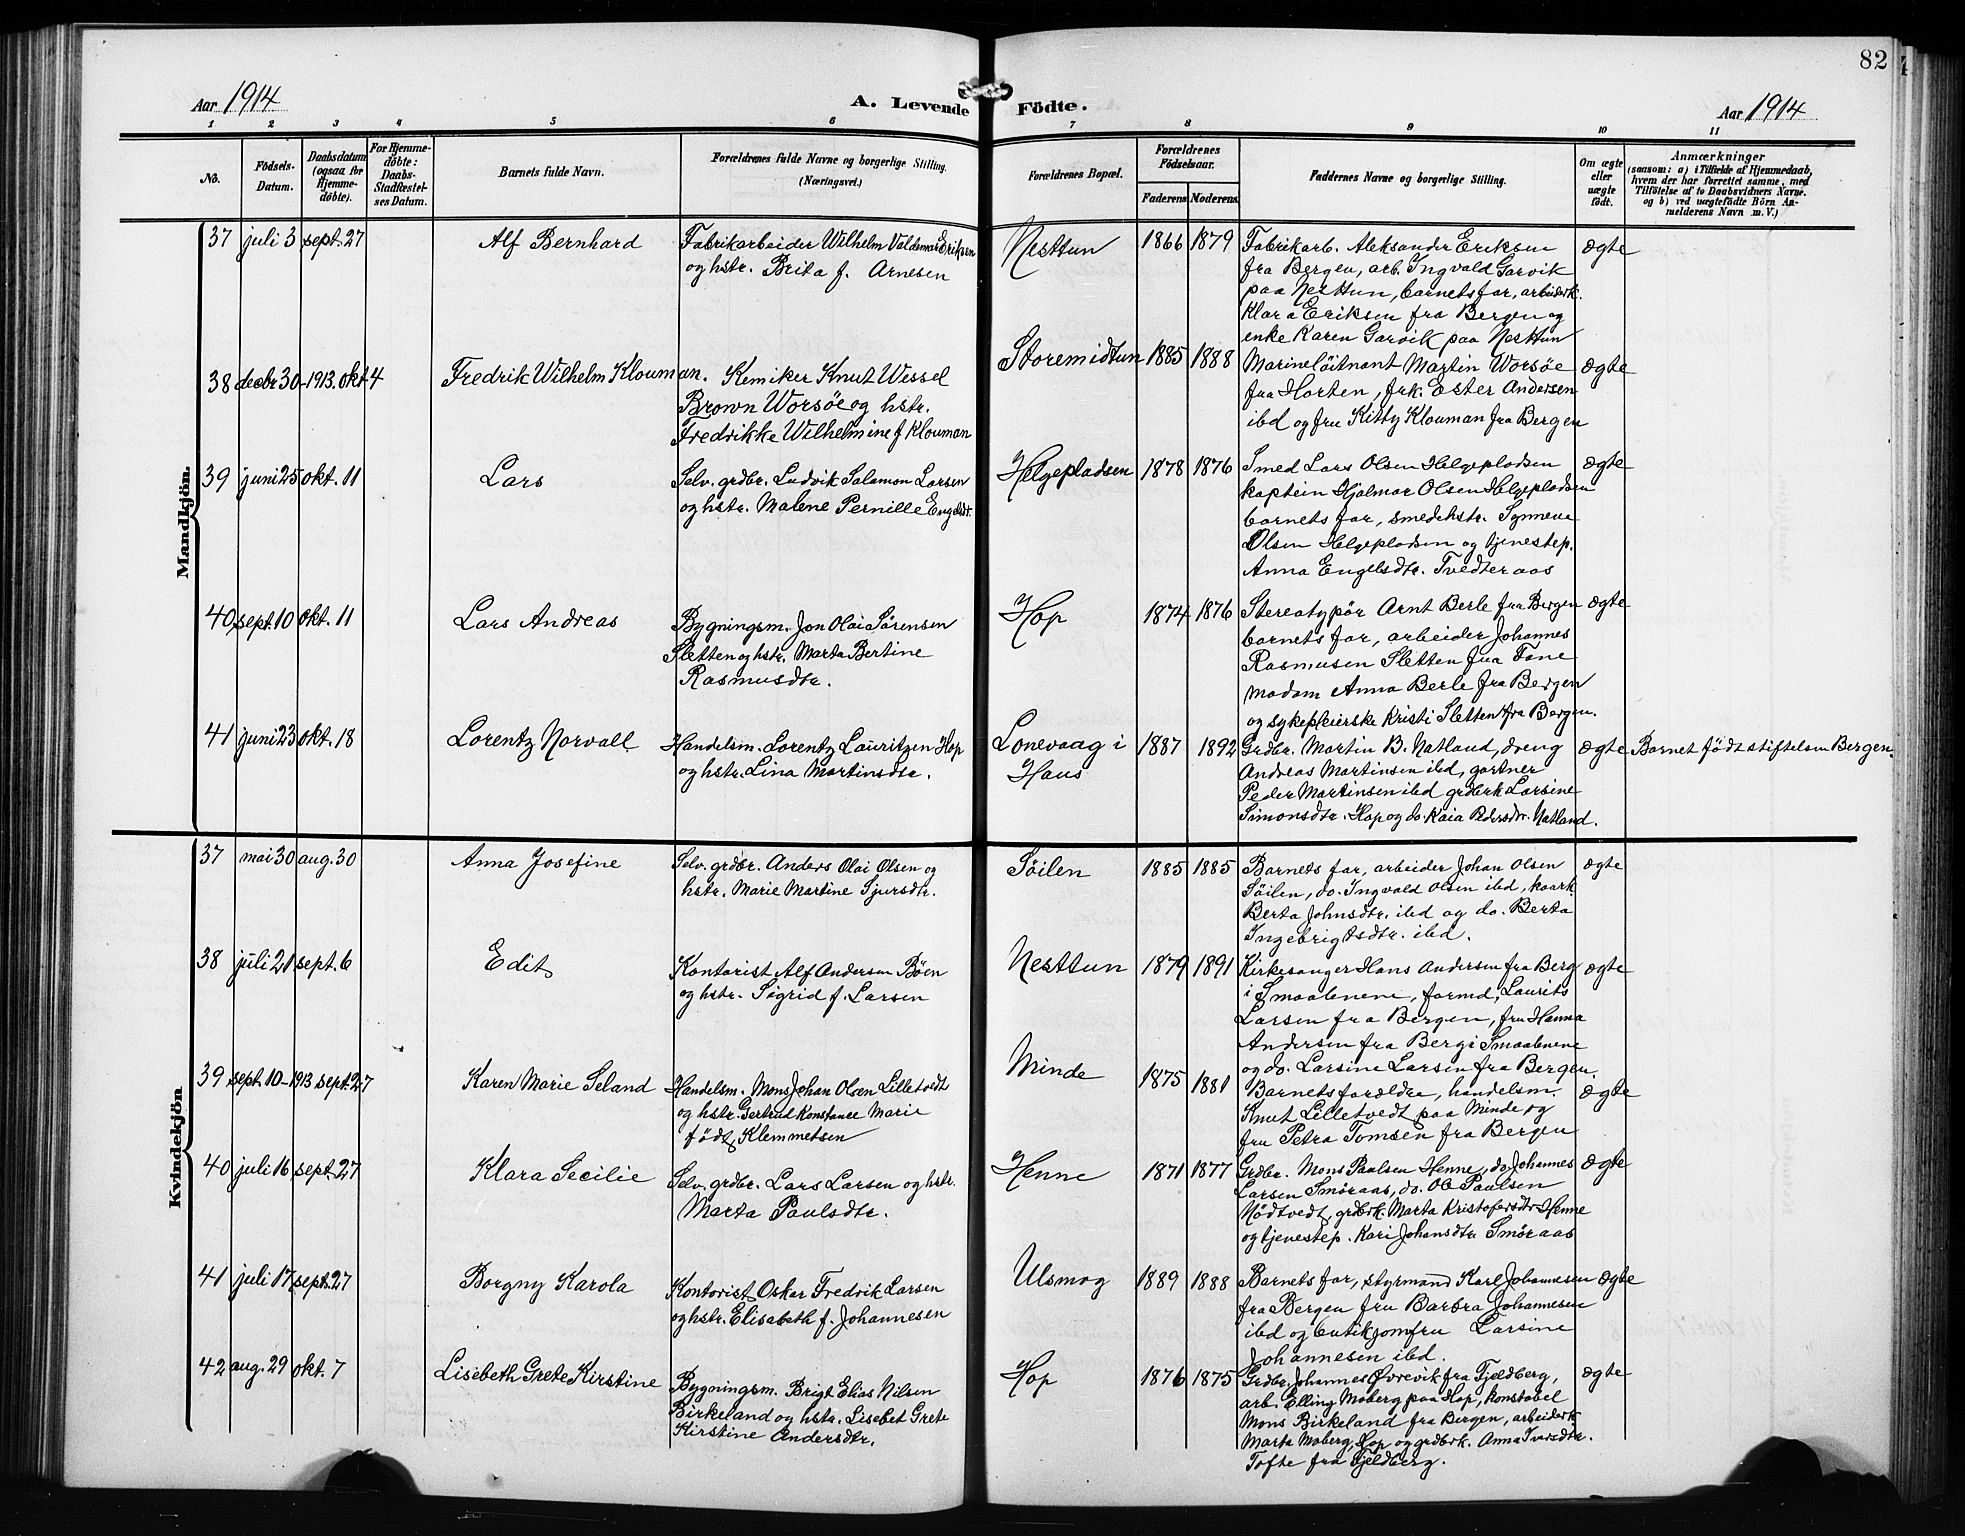 82
Aar 1914
A. Levende Födte.
Aar 1914
1 2 3 4 5 6 7 8 9 10 11
No.
Födsels-
Datum.
Daabsdatum
(ogsaa for
Hjemme-
døbte).
For Hjemme-
døbte:
Daabs-
Stadfæstel-
ses Datum.
Barnets fulde Navn.
Forældrenes fulde Navne og borgerlige Stilling.
(Næringsvei.)
Forældrenes Bopæl.
Forældrenes
Födselsaar.
Faderens
Moderens
Faddernes Navne og borgerlige Stilling.
Om ægte
eller
uægte
født.
Anmærkninger
(saasom: a) i Tilfælde af Hjemmedaab,
hvem der har forrettet samme, med
Tilföielse af to Daabsvidners Navne.
og b) ved uægtefødte Börn An-
melderens Navn m. V.)
Mandkjön
37 juli 3 sept. 27
Alf Bernhard
Fabrikarbeider Wilhelm Valdemar Eriksen
og hstr. Brita f. Arnesen
Nesttun
1866 1879
Fabrikarb. Aleksander Eriksen
fra Bergen, arb. Ingvald Garvik
paa Nesttun, barnets far, arbeiderk.
Klara Eriksen fra Bergen og
enke Karen Garvik paa Nesttun
ægte
38 decbr 30-1913. okt. 4
Fredrik Wilhelm Klouman.
Kemiker Knut Wessel
Brown Worsöe og hstr.
Fredrikke Wilhelmine f Klouman
Storemidtun
1885 1888
Marineløitnant Martin Worsöe
fra Horten, frk. Ester Andersen
ibd og fru Kitty Klouman fra Bergen
ægte
39 juni 25 okt. 11
Lars
Selv. grdbr. Ludvik Salamon Larsen
og hstr. Malene Pernille Engelsdt.
Helgepladsen
1878 1876
Smed Lars Olsen Helgepladsen
kaptein Hjalmar Olsen Helgepladsen
barnets far, smedehstr. Synneve
Olsen Helgepladsen og tjenestep.
Anna Engelsdtr. Tvedteraas
ægte
40 sept. 10 okt. 11
Lars Andreas
Bygningsm. Jon Olai Sørensen
Sletten og hstr. Marta Bertine
Rasmusdtr.
Hop
1874 1876
Stereatypør Arnt Berle fra Bergen
barnets far, arbeider Johannes
Rasmusen Sletten fra Fane
madam Anna Berle fra Bergen
og sykepleierske Kristi Sletten fra Bergen.
ægte
41 juni 23 okt. 18
Lorentz Norvall
Handelsm. Lorentz Lauritzen Hop
og hstr. Lina Martinsdtr.
Lonevaag i
Haus
1887 1892
Grdbr. Martin B. Natland, dreng
Andreas Martinsen ibd, gartner
Peder Martinsen ibd grdbrk Larsine
Simonsdtr. Hop og do. Kaia Pedersdtr. Natland.
ægte
Barnet født stiftelsen Bergen.
Kvindekjön
37 mai 30 aug. 30
Anna Josefine
Selv. grdbr. Anders Olai Olsen og
hstr. Marie Martine Sjursdtr.
Søilen
1885 1885
Barnets far, arbeider Johan Olsen
Søilen, do. Ingvald Olsen ibd, kaark.
Berta Johnsdtr. ibd og do. Berta
Ingebrigtsdtr. ibd.
ægte
38 juli 21 sept. 6
Edit
Kontorist Alf Andersen Böen
og hstr. Sigrid f. Larsen
Nesttun
1879 1891
Kirkesanger Hans Andersen fra Berg
i Smaalenene, formd, Laurits
Larsen fra Bergen, fru Hanna
Andersen fra Berg i Smaalenene
og do. Larsine Larsen fra Bergen.
ægte
39 sept. 10-1913 sept. 27
Karen Marie Seland
Handelsm. Mons Johan Olsen Lilletvedt
og hstr. Gertrud Konstance Marie
født Klemmetsen
Minde
1875 1881
Barnets forældre, handelsm.
Knut Lilletvedt paa Minde og
fru Petra Tomsen fra Bergen
ægte
40 juli 16 sept. 27
Klara Secilie
Selv. grdbr. Lars Larsen og hstr.
Marta Paulsdtr.
Henne
1871 1877
Grdbr. Mons Paulsen Henne, do Johannes
Larsen Smöraas, do. Ole Paulsen
Nödtvedt, grdbrk. Marta Kristofersdtr Henne
og tjenestep. Kari Johansdtr Smöraas
ægte
41 juli 17 sept. 27
Borgny Karola
Kontorist Oskar Fredrik Larsen
og hstr. Elisabeth f. Johannesen
Ulsmog
1889 1888
Barnets far, styrmand Karl Johannesen
fra Bergen fru Barbra Johannesen
ibd og butikjomfru Larsine
Johannesen ibd.
ægte
42 aug. 29 okt. 7
Lisebeth Grete Kirstine
Bygningsm. Brigt Elias Nilsen
Birkeland og hstr. Lisebet Grete
Kirstine Andersdtr.
Hop
1876 1875
Grdbr. Johannes Øvrevik fra Fjeldberg,
arb. Elling Moberg paa Hop, konstabel
Mons Birkeland fra Bergen, arbeiderk.
Marta Moberg, Hop og grdbrk. Anna Iversdtr.
Tofte fra Fjeldberg.
ægte